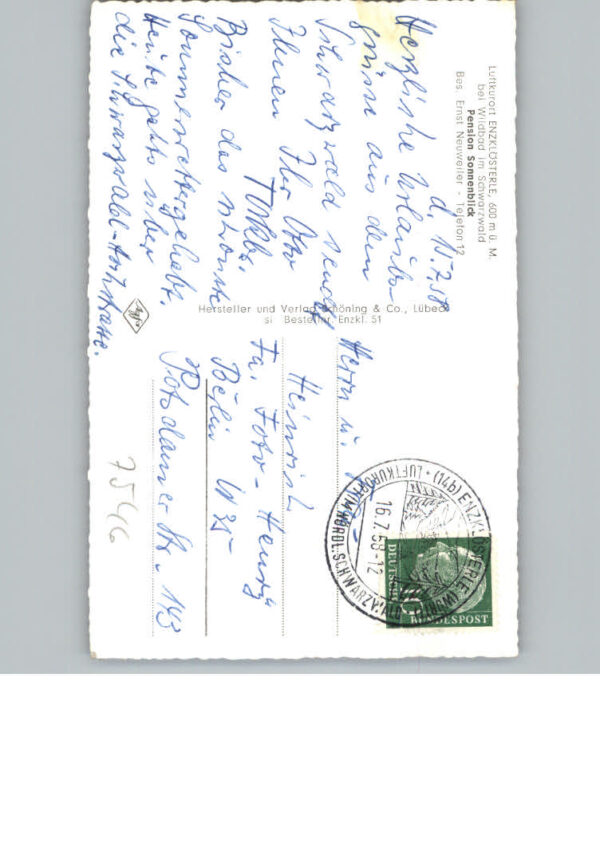 Luftkurort ENZKLÖSTERLE, 600 m ü. M.
bei Wildbad im Schwarzwald
Pension Sonnenblick
Bes. Ernst Neuweiler - Telefon 12
d. 15.7.58
Herzliche Urlaubs-
grüsse aus dem
Schwarzwald sendet
Ihnen Ihr Otto
Bisher das schönste
Sommerwetter gehabt.
Heute gehts über
die Schwarzwald-Hochstrasse.
Agfa
Hersteller und Verlag Schöning & Co., Lübeck
si Besteller Enzkl. 51
Herrn u.
Heinrich
Fa. Foto-
Berlin W35
Potsdamer Str. 143
(14b) ENZKLÖSTERLE
LUFTKURORT IM NÖRDL. SCHWARZWALD
16.7.58-12
10
DEUTSCHE
BUNDESPOST
7546